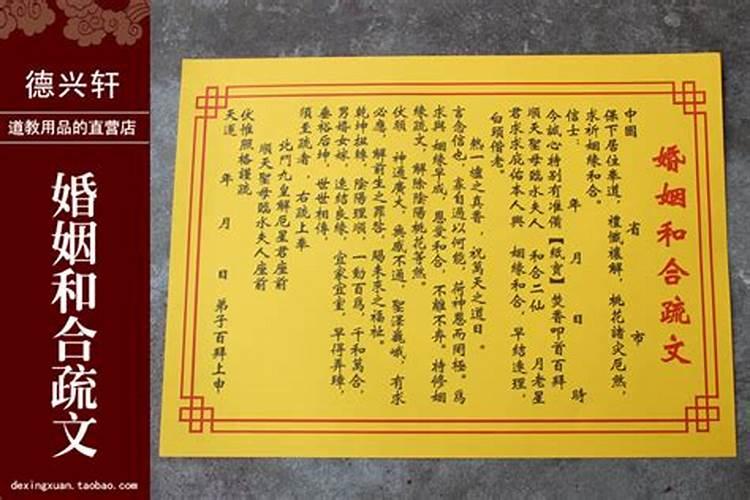 德兴轩
道教用品的直营店
婚姻和合疏文
dexingxuan.taobao.com
婚姻和合疏文
中國 省 市
保下居住奉道，禮懺禳解，桃花諸灾厄煞，
求祈姻緣和合。
信士： 年 月 日 時
今誠心特别有准備【紙寶】焚香叩首百拜
順天聖母臨水夫人 和合二仙 月老星
君求求庇佑本人與 姻緣和合，早结連理，
白頭偕老。
熱一爐之真香，祝萬天之道日。
言念信也，拿自過以何能，荷神恩而罔極。爲
求與 姻緣早成，恩愛和合，不離不弃。特修姻
緣疏文，解除陰陽桃花等煞。
伏願 神通廣大，無感不通，聖澤巍峨，有求
必應，解前生之罪咎，賜未來之福祉。
乾坤扭轉，陰陽理順，一動百爲，千和萬合，
男婚女嫁，速结良緣，宜家宜室，早得弄璋，
垂裕后坤，世世相傳，
須至疏者，右疏上奉
北鬥九皇解厄星君座前
順天聖母臨水夫人座前
伏惟照格謹疏
天運 年 月 日 弟子百拜上申